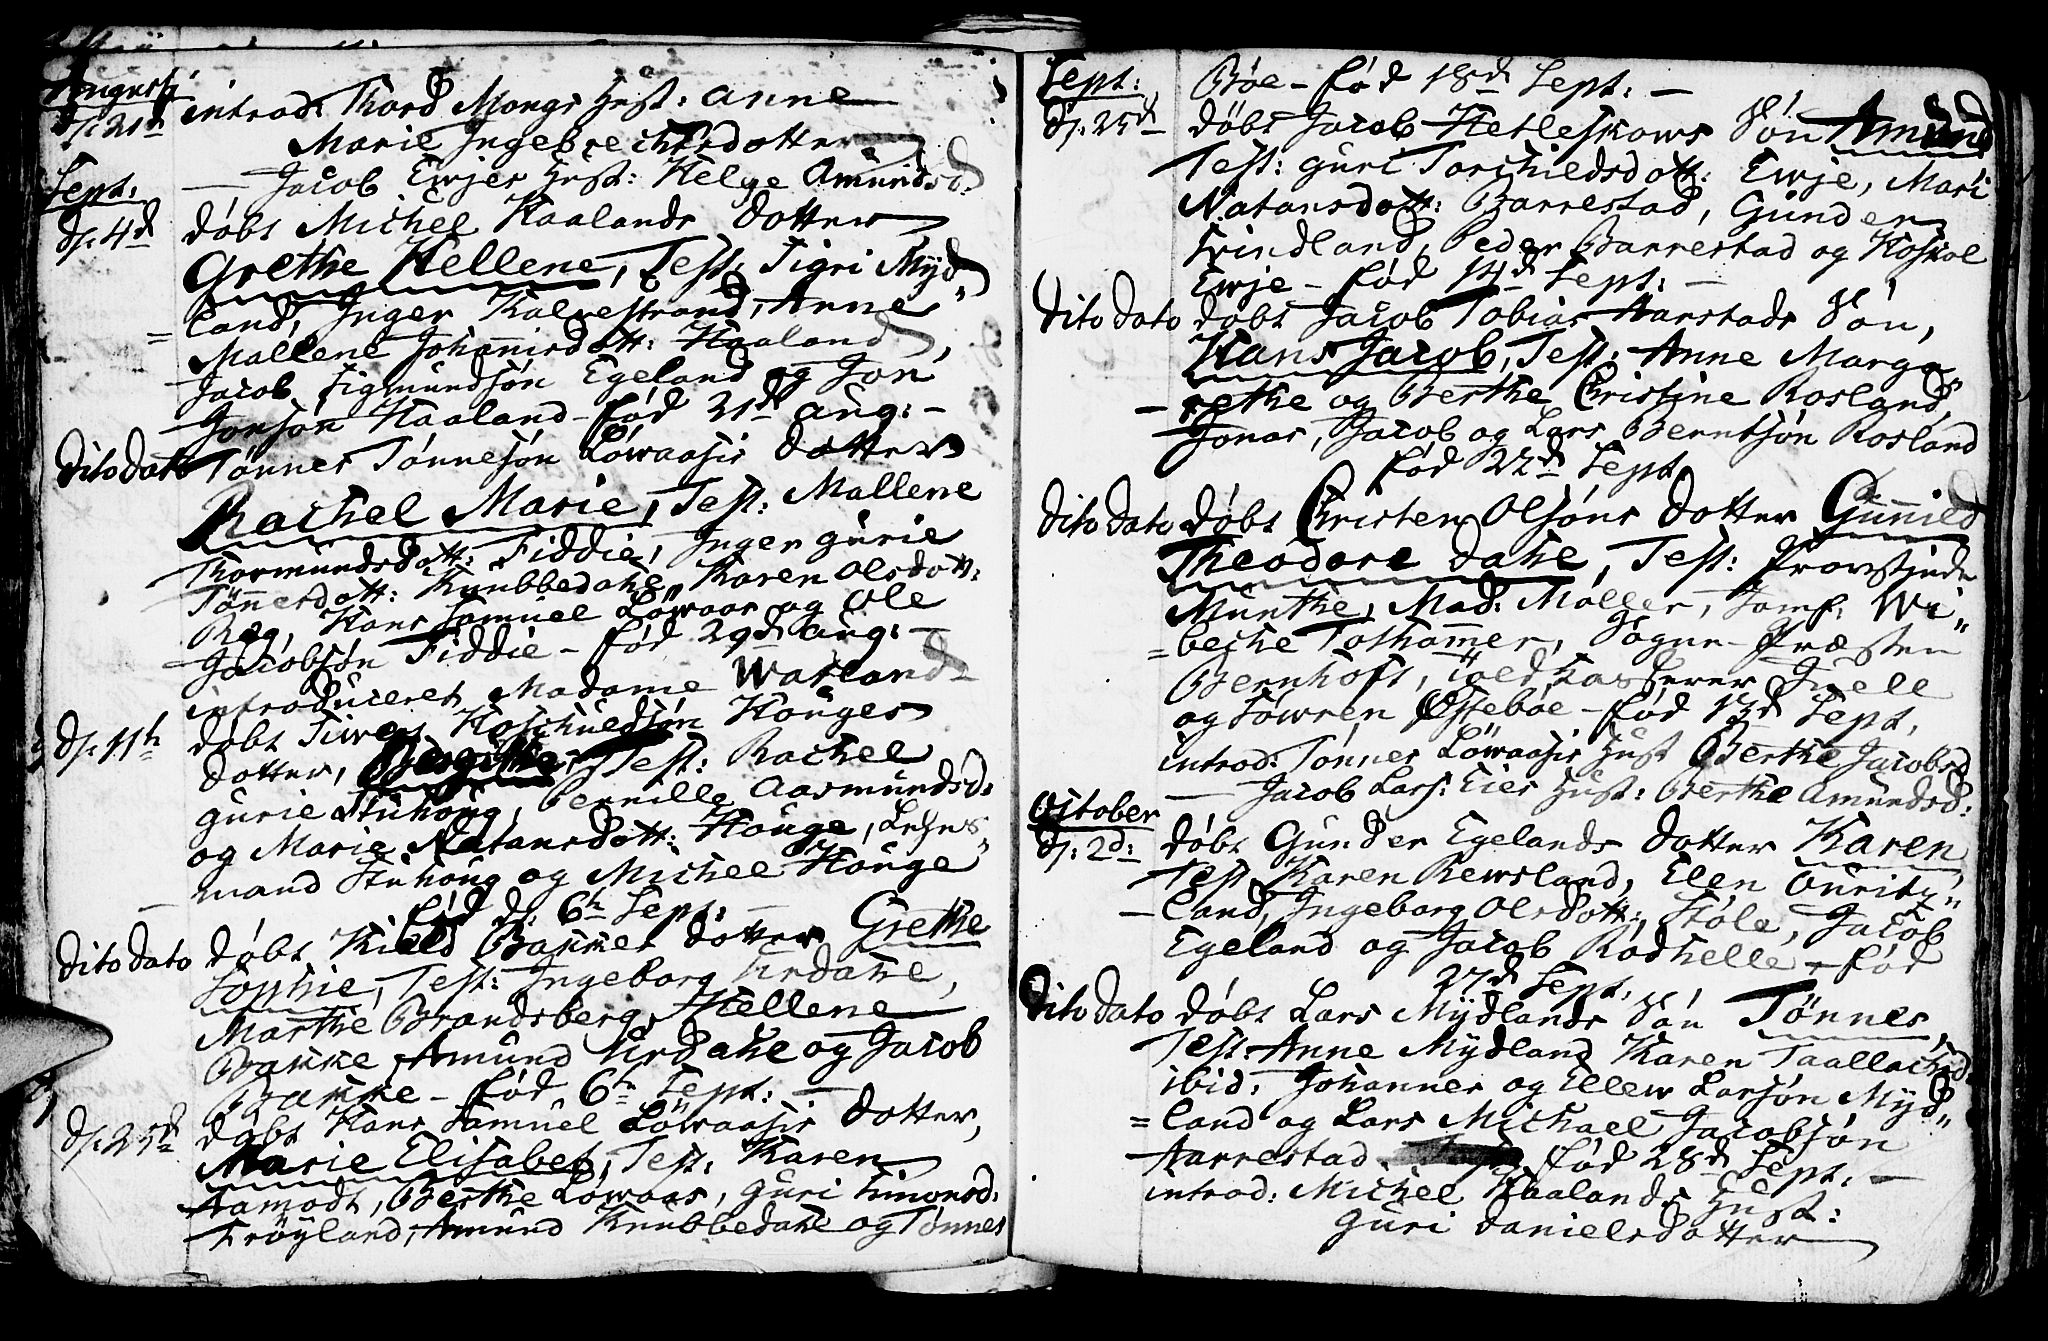 Augusti
d: 21d introd: Thord Mongs Hust: Anne
Marie Ingebrechtsdotter
Sept: — Jacob Ewjes Hust: Helge Amundsd:
d: 4d döbt Michel Haalands dotter
Grethe Hellene, Test: Sigri Myd=
=land, Inger Kalvestrand, Anne
Mallene Johannisdott: Haaland,
Jacob Sigmundsøn Egeland og Jon
Jonsøn Haaland – fød 21d Aug: –
dito dato Tønnes Tønnesøn Löwaasis dotter
Rachel Marie, Test: Mallene
Thormundsdott: Fiddie, Inger gurie
Tönnesdott: Knubbedahl, Karen Olsdott:
Røg, Hans Samuel Löwaas og Ole
Jacobsøn Fiddie – fød 29d Aug: –
introduceret Madame Watland
d: 11th döbt Siwert Hoschuldsøn Houges
dotter, Birgitthe, Test: Rachel
gurie Stuhoug, Pernille Aasmundsd:
og Marie Natansdott: Houge, Lehns=
mand Stuhoug og Michel Houge
– fød d: 6th Sept: –
dito dato döbt Kield Bakkes dotter Grethe
Sophie, Test: Ingeborg Urdahl,
Marthe Brandsberg, Hellene
Bakke, Amund Urdahl og Jacob
Bakke – fød 6th Sept: –
d: 25d döbt Hans Samuel Löwaasis dotter,
Marie Elisabet, Test: Karen
Aamodt, Berthe Löwaas, Guri Simonsd:
Frøyland, Amund Knubbedahl og Tönnes
Sept: Bøe – fød 18d Sept: –
d: 25d döbt Jacob Hetleskows Søn Amund
Test: guri Torchildsdott: Ewje, Mari
Natansdott: Barrestad, Gunder
Trindland, Peder Barrestad og Hoskol
Ewje – fød 14d Sept: –
dito dato döbt Jacob Tobias Aarstads Søn,
Hans Jacob, Test: Anne Marga=
=rethe og Berthe Christine Rosland,
Jonas, Jacob og Lars Berntsøn Rosland
fød 22d Sept
dito dato döbt Christen Olsøns dotter Gunnild
Theodore Dahl, Test: Provstinde
Munthe, Mad: Møller, Jomf: Wi=
=beche Tothammer, Sogne-Præsten
Bernhoft, Told Kasserer Juell
og Söwren Østebøe – fød 13d Sept,
introd: Tønnes Löwaasis Hust Berthe Jacobsd
— Jacob Lars: Eies Hust: Berthe Amundsd:
October
d: 2d: döbt Gunder Egelands dotter Karen,
Test: Karen Rewsland, Elen Ouritz=
=land, Ingeborg Olsdott: Støle, Jacob
Egeland og Jacob Rodhelle – fød
27d Sept,
dito dato döbt Lars Mydlands Søn Tönnes,
Test: Anne Mydland Karen Taallachsd
ibid. Johannes og Ellew Larsøn Myd=
=land og Lars Michael Jacobsøn
Aarrestad fød 28d Sept: –
introd: Michel Haalands Hust:
Guri Danielsdotter